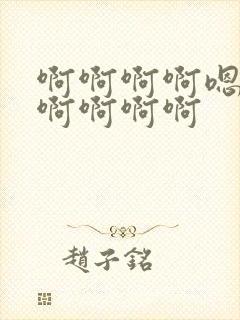 啊啊啊啊嗯
啊啊啊啊
趙子銘